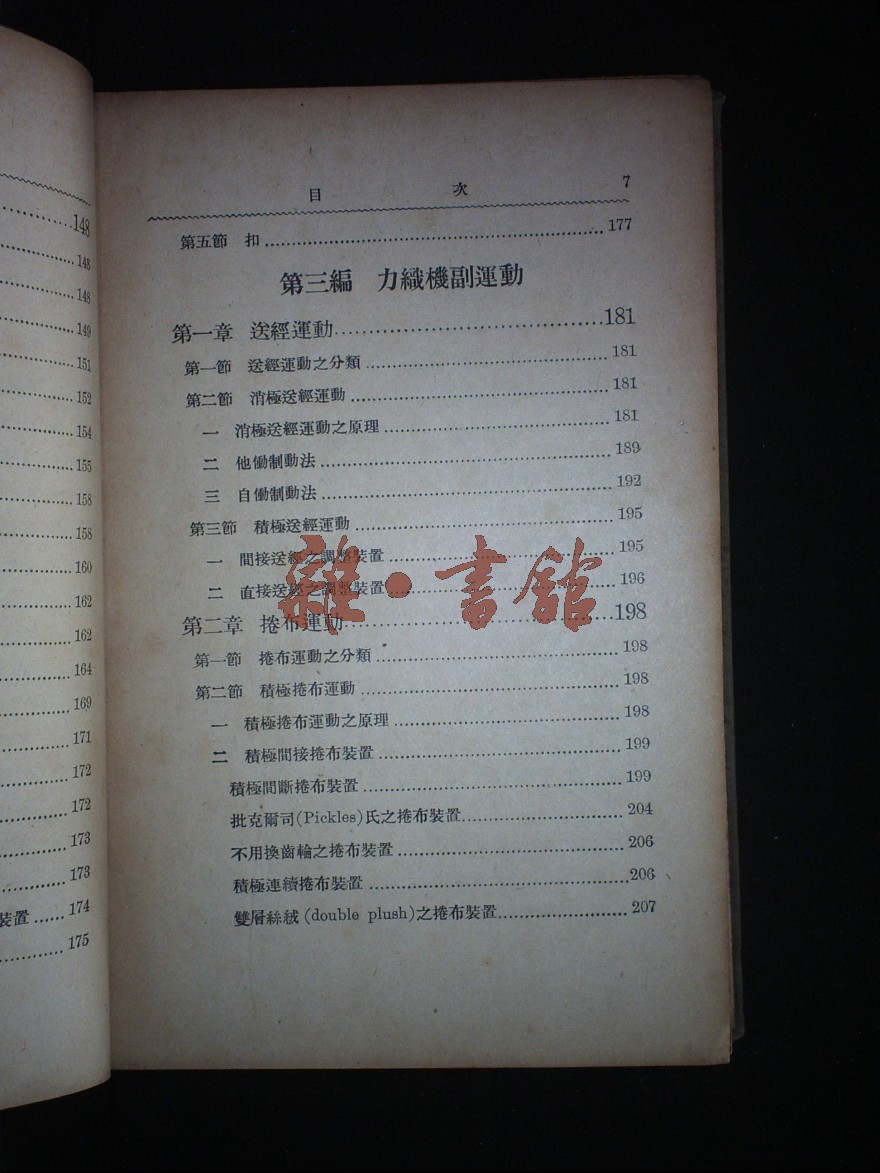 148
148
148
149
151
152
154
155
158
158
160
162
162
164
169
171
172
172
173
173
裝置……174
175
目 次 7
第五節 扣……177
第三編 力織機副運動
第一章 送經運動……181
第一節 送經運動之分類……181
第二節 消極送經運動……181
一 消極送經運動之原理……181
二 他働制動法……189
三 自働制動法……192
第三節 積極送經運動……195
一 間接送經之調整裝置……195
二 直接送經之調整裝置……196
雜·書館
第二章 捲布運動……198
第一節 捲布運動之分類……198
第二節 積極捲布運動……198
一 積極捲布運動之原理……198
二 積極間接捲布裝置……199
積極間斷捲布裝置……199
批克爾司(Pickles)氏之捲布裝置……204
不用換齒輪之捲布裝置……206
積極連續捲布裝置……206
雙層絲絨(double plush)之捲布裝置……207